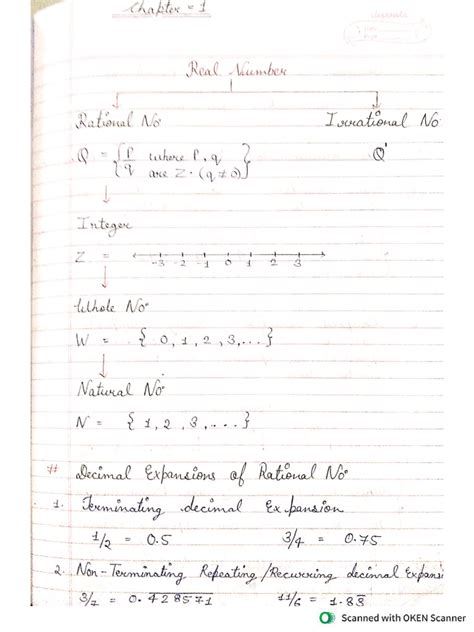 Chapter = 1
Real Number
Rational No Irrational No
Q = { P/q where P, q are Z. (q ≠ 0) } Q'
Integer
Z = -3 -2 -1 0 1 2 3
Whole No
W = { 0, 1, 2, 3, ... }
Natural No
N = { 1, 2, 3, .... }
# Decimal Expansions of Rational No
1. Terminating decimal Expansion
1/2 = 0.5 3/4 = 0.75
2. Non-Terminating Repeating/Recurring decimal Expansi
3/7 = 0.428571 11/6 = 1.83
Scanned with OKEN Scanner